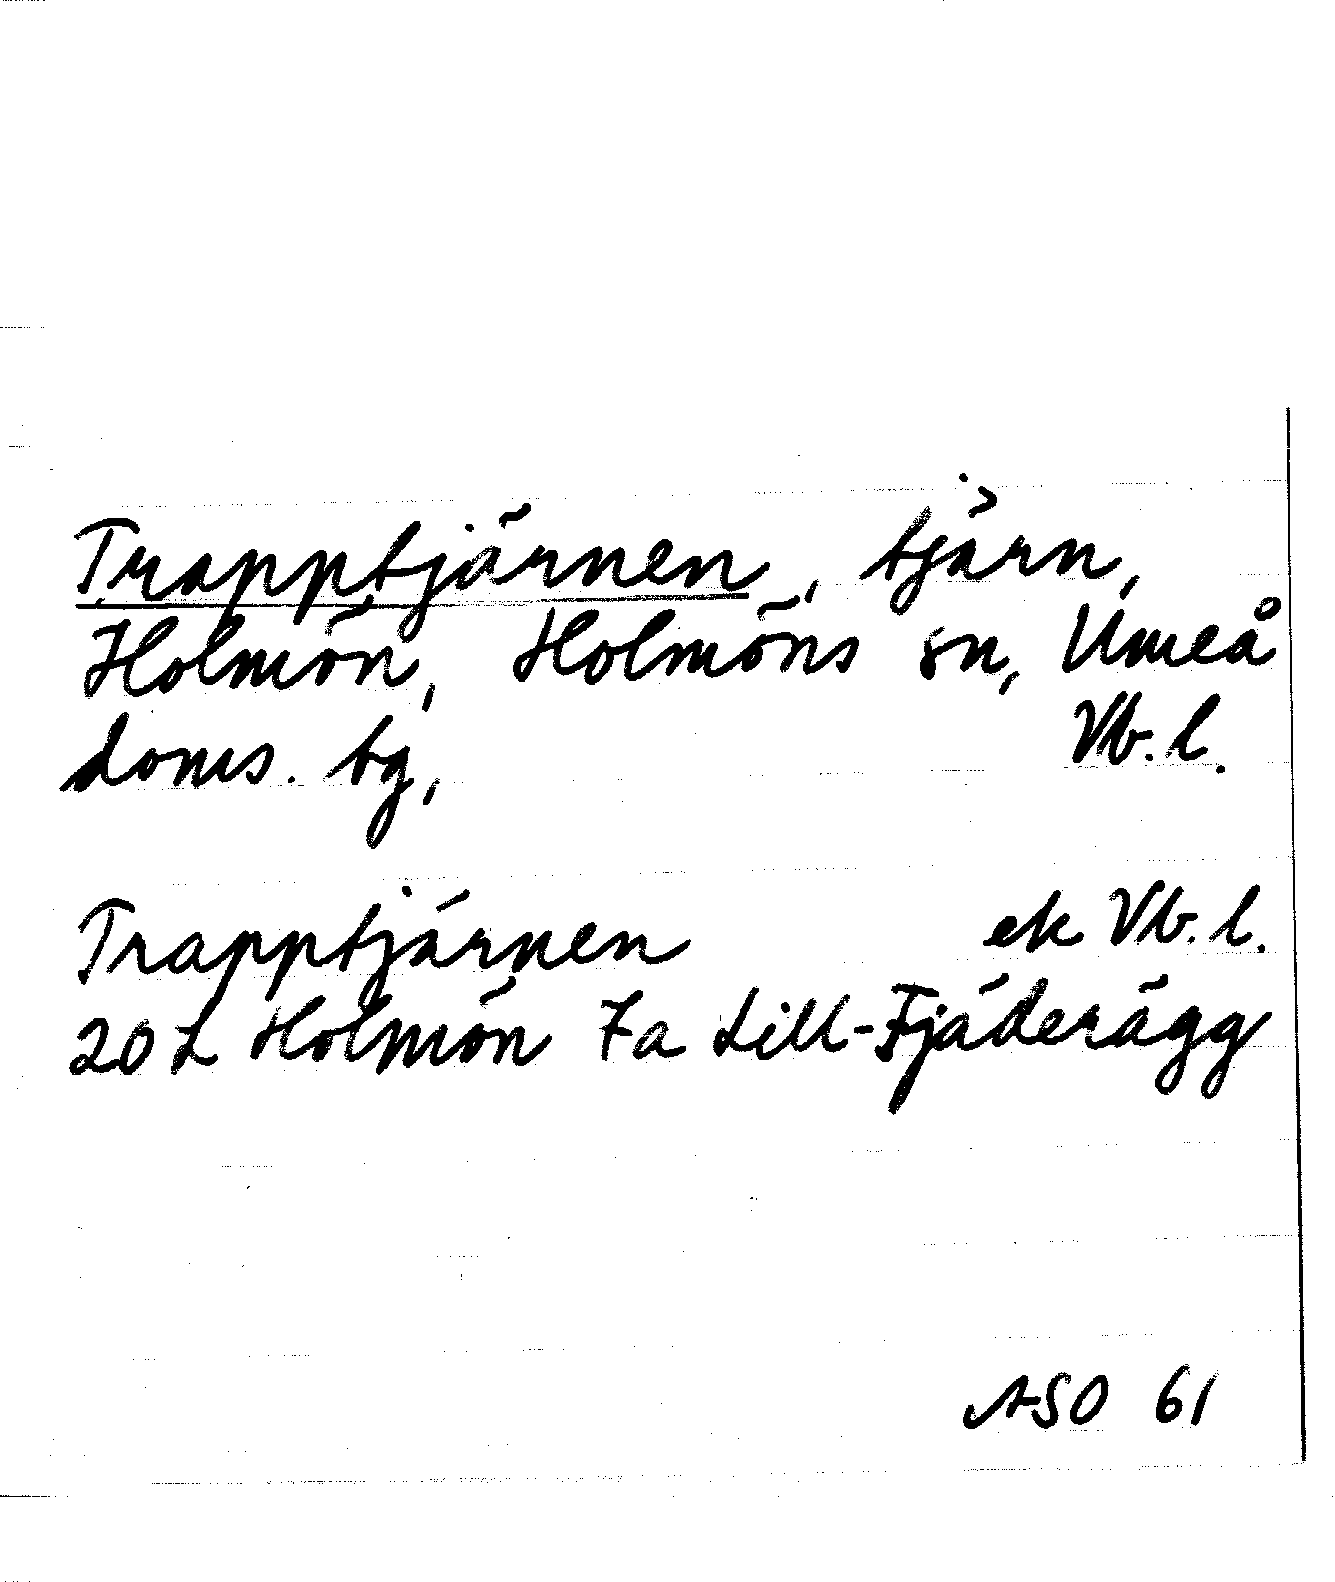 Trapptjärnen, tjärn,
Holmön, Holmöns sn, Umeå
doms. tg, Vb. l.
Trapptjärnen ek Vb. l.
20 L Holmön 7a Lill-Fjäderägg
ASO 61